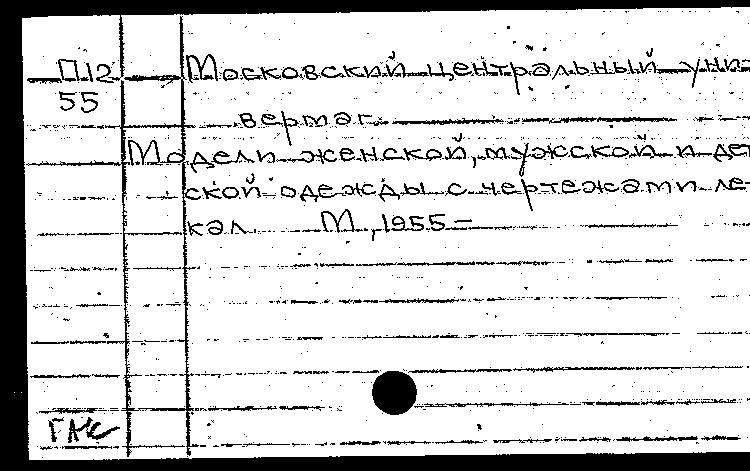 П12 Московский центральный уни-
55
вермаг.
Модели женской, мужской и дет-
ской одежды с чертежами ле-
кал. М., 1955 –